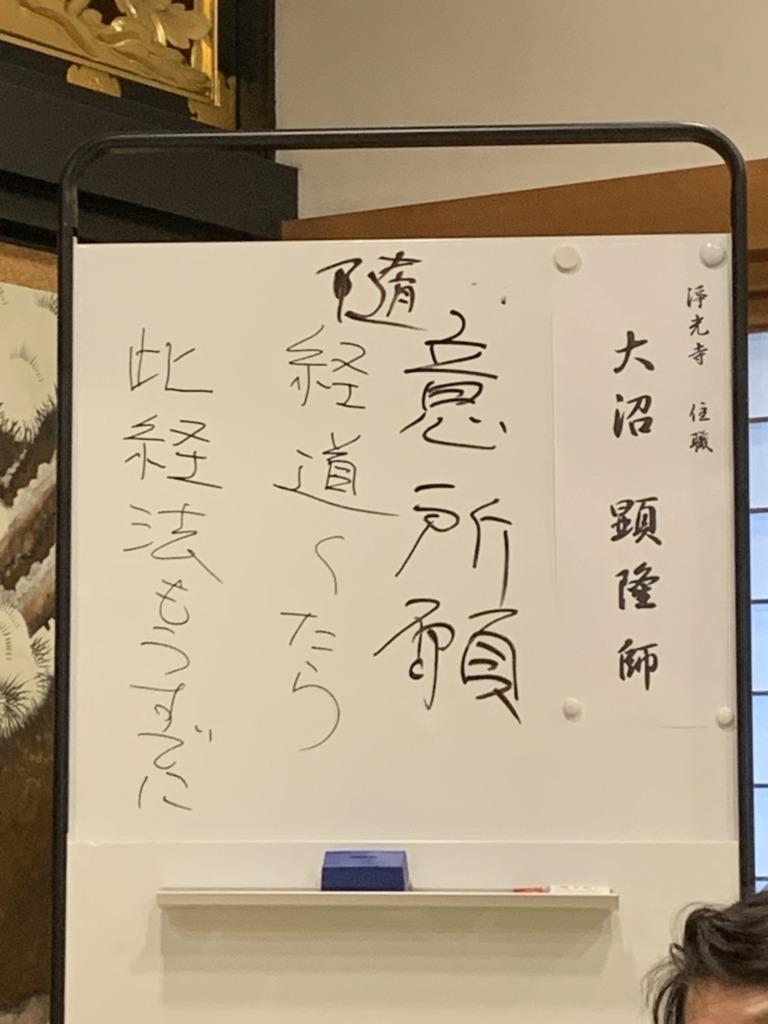 淨光寺 住職
大沼 顕隆師
随意所願
経道くたら
此経法もうすでに